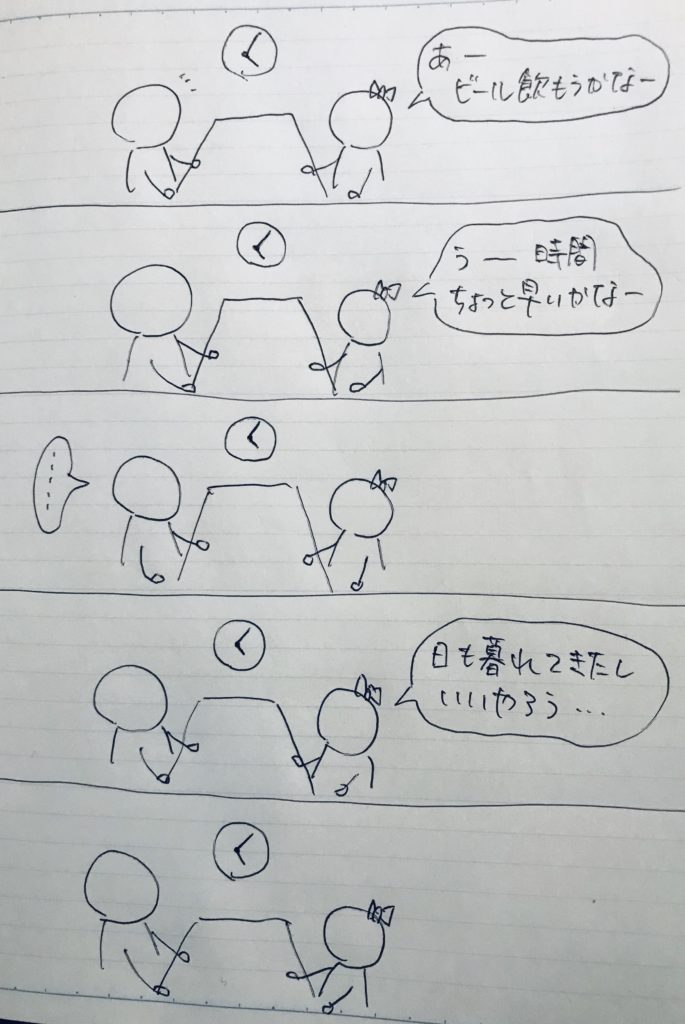 あー
ビール飲もうかなー
うー 時間
ちょっと早いかなー
……
日も暮れてきたし
いいやろう…